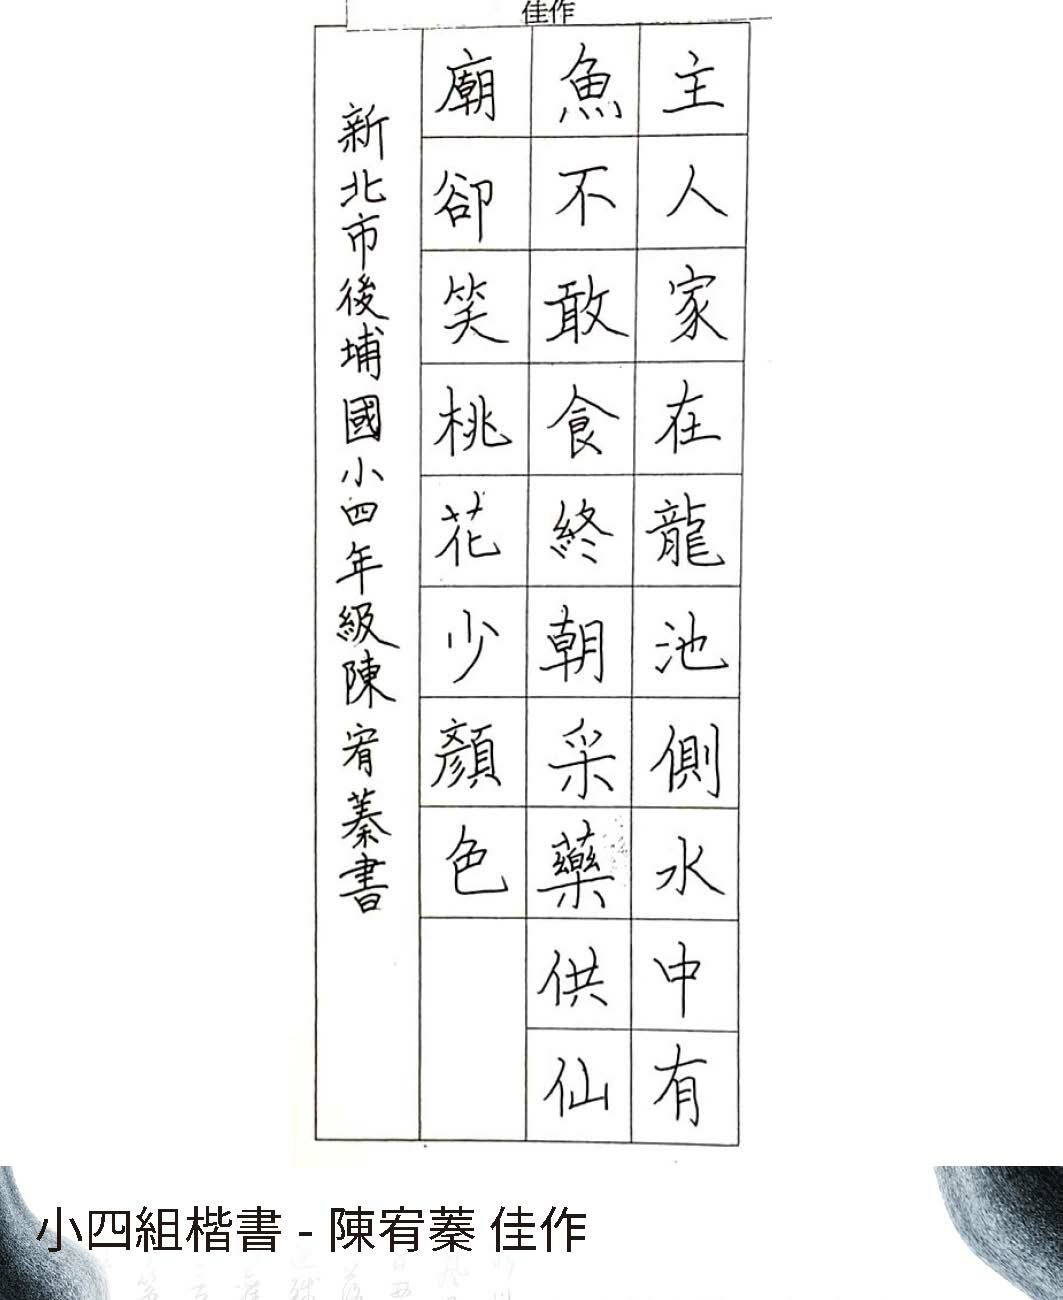 佳作
主人家在龍池側水中有
魚不敢食終朝采藥供仙
廟卻笑桃花少顏色
新北市後埔國小四年級陳宥蓁書
小四組楷書 - 陳宥蓁 佳作